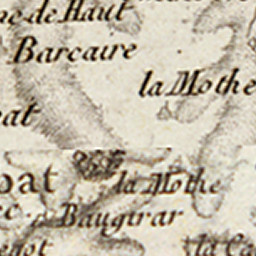 ne-de Haut
Barcaire
la Mothe
at
pat
la Mothe
Baugirar
la Ca